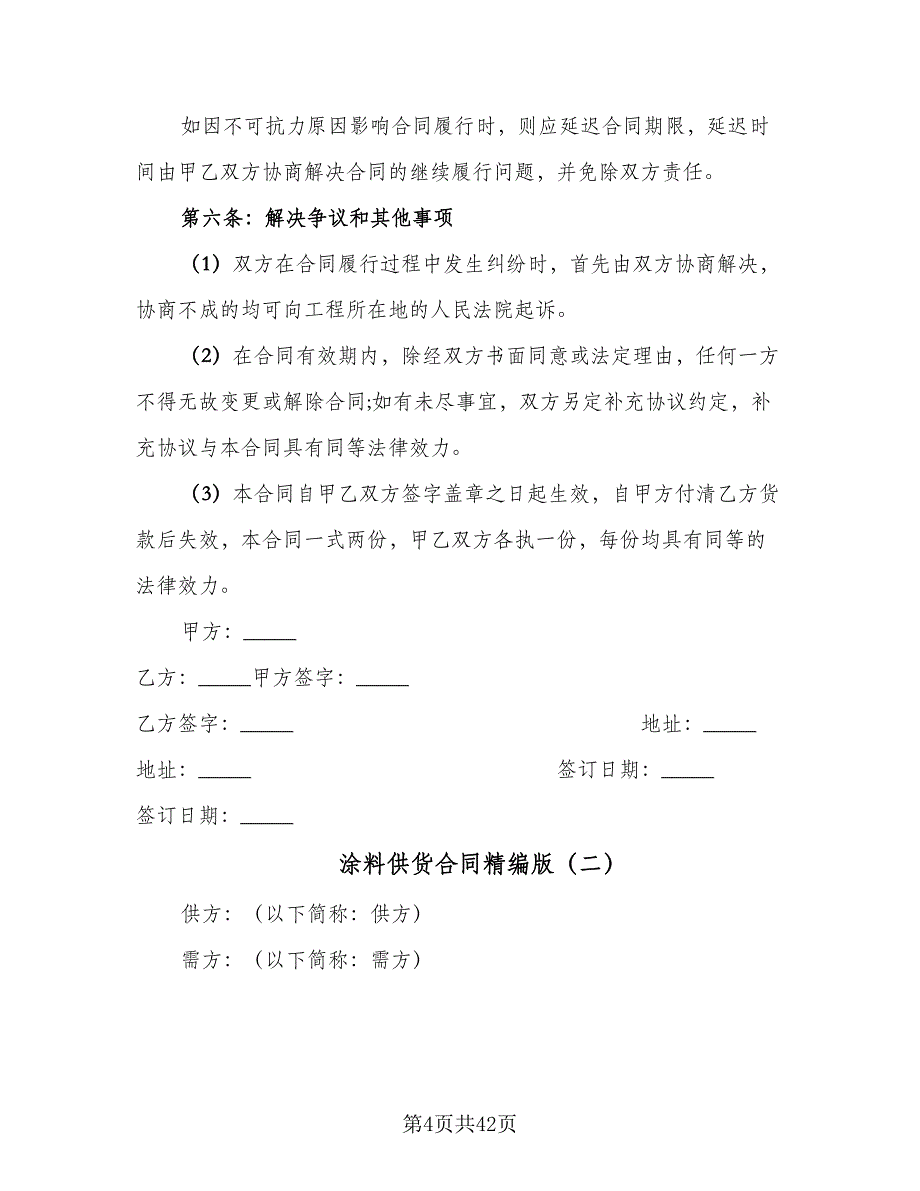 如因不可抗力原因影响合同履行时，则应延迟合同期限，延迟时
间由甲乙双方协商解决合同的继续履行问题，并免除双方责任。
第六条：解决争议和其他事项
（1）双方在合同履行过程中发生纠纷时，首先由双方协商解决，
协商不成的均可向工程所在地的人民法院起诉。
（2）在合同有效期内，除经双方书面同意或法定理由，任何一方
不得无故变更或解除合同;如有未尽事宜，双方另定补充协议约定，补
充协议与本合同具有同等法律效力。
（3）本合同自甲乙双方签字盖章之日起生效，自甲方付清乙方货
款后失效，本合同一式两份，甲乙双方各执一份，每份均具有同等的
法律效力。
甲方：_____
乙方：_____甲方签字：_____
乙方签字：_____ 地址：_____
地址：_____ 签订日期：_____
签订日期：_____
涂料供货合同精编版（二）
供方：（以下简称：供方）
需方：（以下简称：需方）
第4页共42页